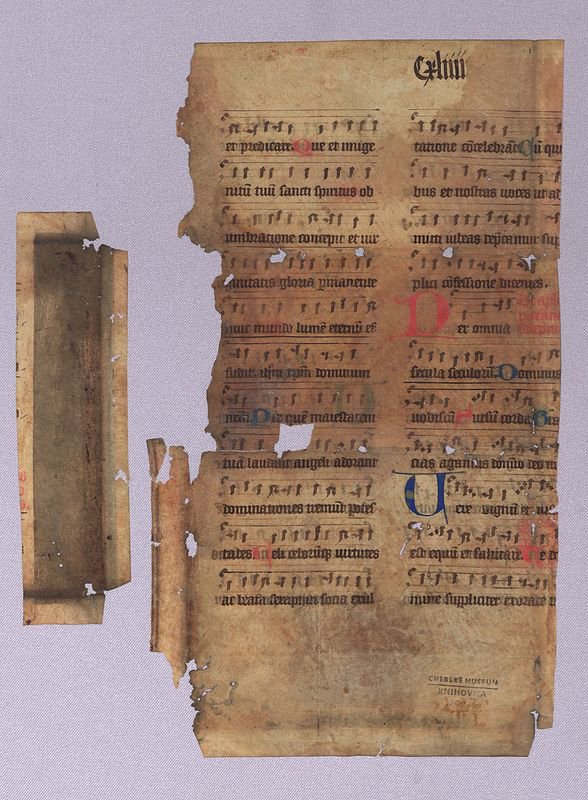 Cxliiii
et predicare. Que et unige
nitū tuū sancti spiritus ob
umbratione concepit et vir
ginitatis gloria pmanente
huic mundo lumē eternū ef
fudit ihm xpm dominum
nrm. Per quē maiestatem
tuā laudant angeli adorant
dominationes tremūt potes
tates. Celi celorūq virtutes
ac beata seraphin socia exul
tatione cōcelebrāt. Cū qui
bus et nostras voces ut ad
mitti iubeas deprecamur sup
plici cōfessione dicentes.
Per omnia
secula seculorū. Dominus
vobiscū. Sursū corda.
cias agamus domino deo n
Vere dignū et iu
est equū et salutare.
mine suppliciter exorare
CHEBSKÉ MUSEUM
KNIHOVNA